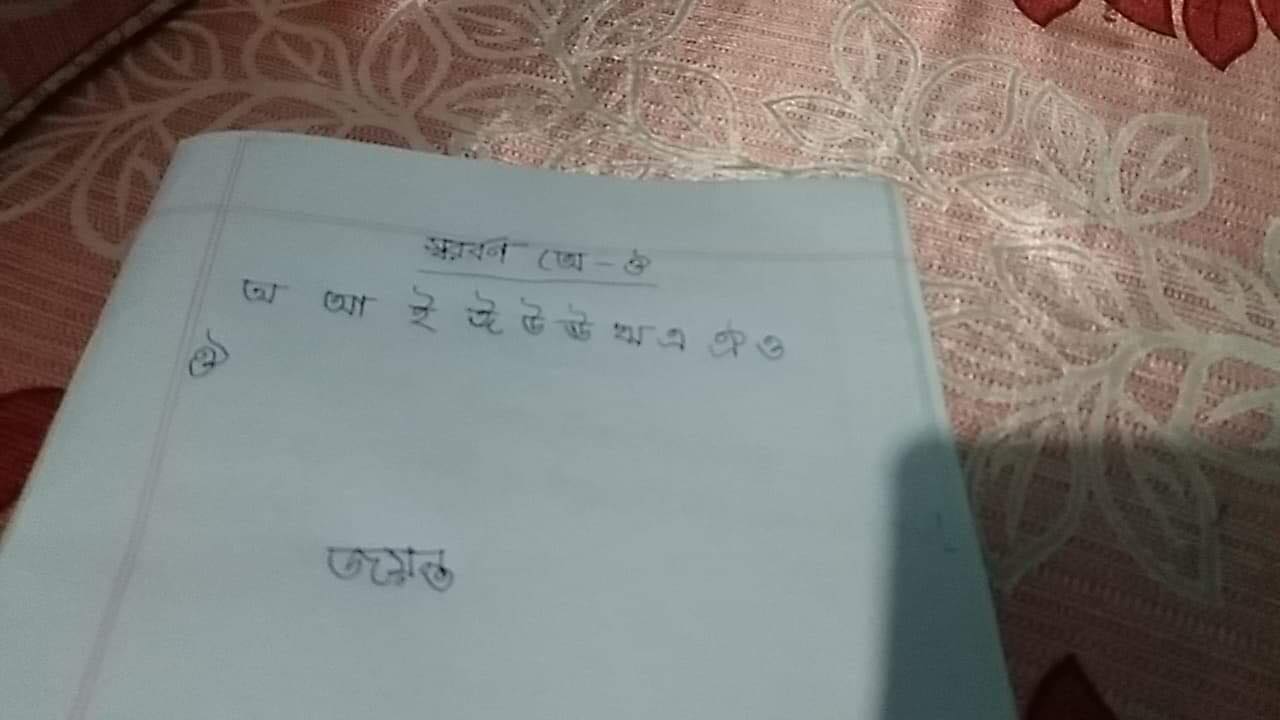 স্বরবর্ন (অ - ঔ
অ আ ই ঈ উ ঊ ঋ এ ঐ ও
ঔ
জয়ন্ত